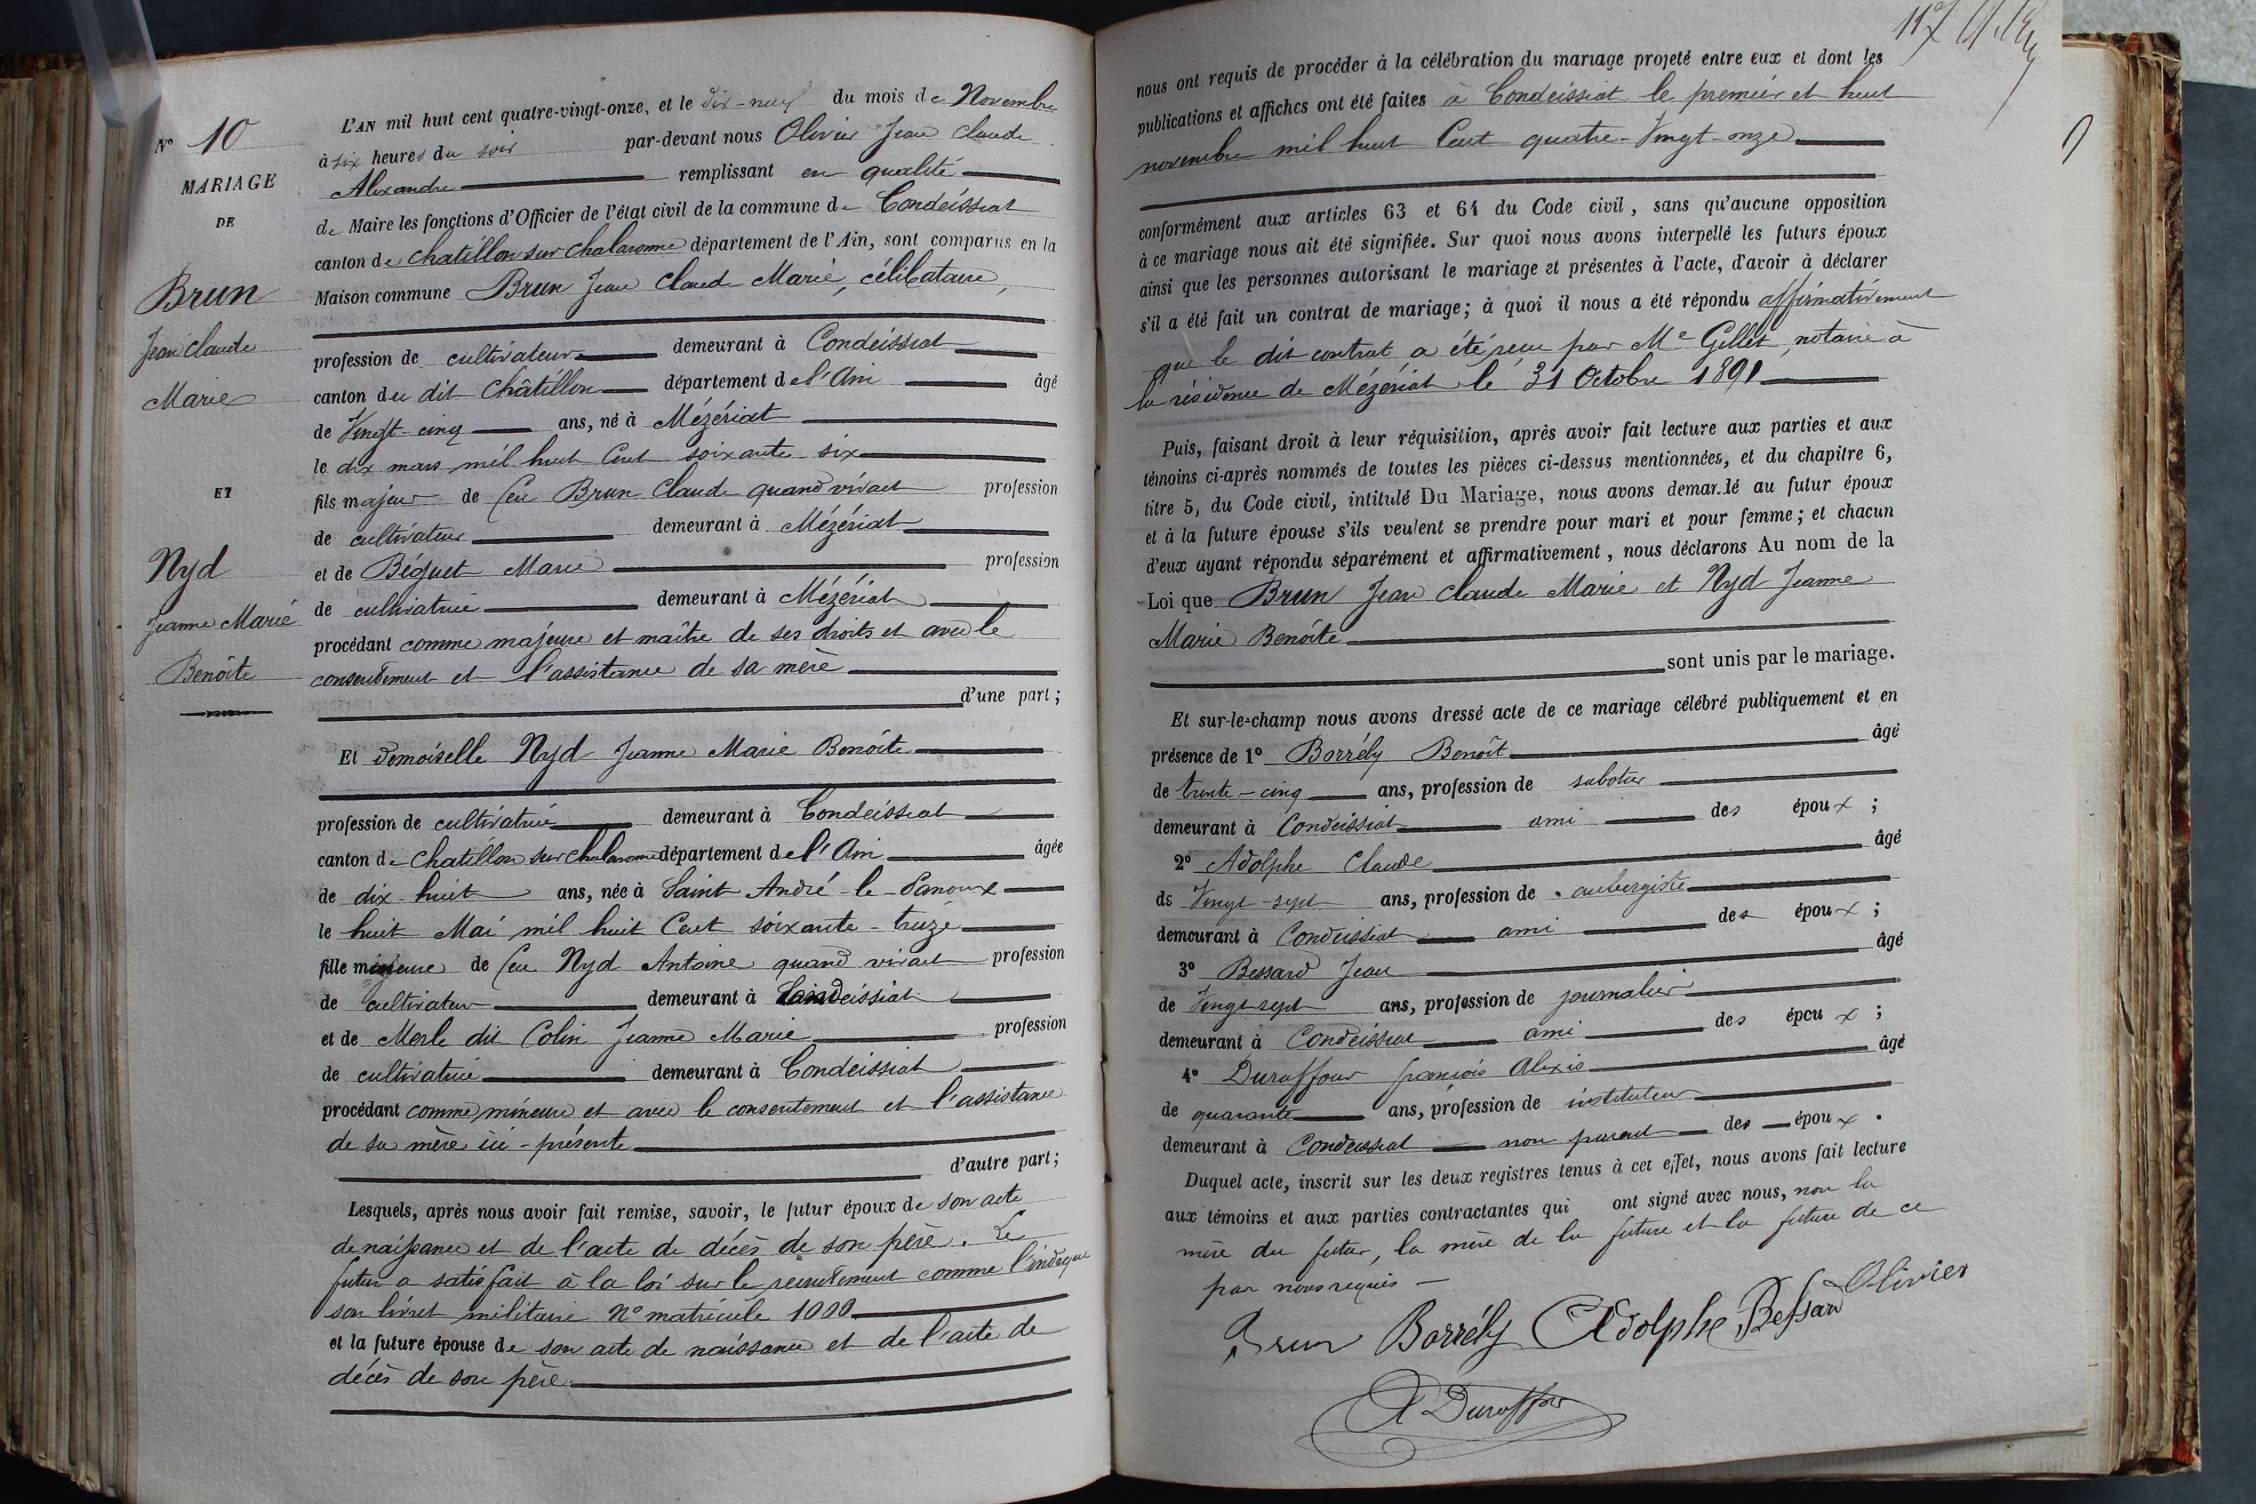 N° 10
MARIAGE
DE
Brun
Jean Claude
Marie
ET
Nyd
Jeanne Marie
Benoîte
L'AN mil huit cent quatre-vingt-onze, et le dix-neuf du mois de Novembre
à six heures du soir par-devant nous Olivier Jean Claude
Alexandre remplissant en qualité
de Maire les fonctions d'Officier de l'état civil de la commune de Condeissiat
canton de Chatillon sur Chalaronne département de l'Ain, sont comparus en la
Maison commune Brun Jean Claude Marie, célibataire,
profession de cultivateur demeurant à Condeissiat
canton du dit Châtillon département de l'Ain âgé
de Vingt-cinq ans, né à Mézériat
le dix mars mil huit Cent soixante-six
fils majeur de feu Brun Claude quand vivait profession
de cultivateur demeurant à Mézériat
et de Béguet Marie profession
de cultivatrice demeurant à Mézériat
procédant comme majeure et maître de ses droits et avec le
consentement et l'assistance de sa mère
d'une part;
Et demoiselle Nyd Jeanne Marie Benoîte
profession de cultivatrice demeurant à Condeissiat
canton de Chatillon sur Chalaronne département de l'Ain âgée
de dix-huit ans, née à Saint André-le-Panoux
le huit Mai mil huit Cent soixante-treize
fille mineure de feu Nyd Antoine quand vivait profession
de cultivateur demeurant à Condeissiat
et de Merle dit Colin Jeanne Marie profession
de cultivatrice demeurant à Condeissiat
procédant comme mineure et avec le consentement et l'assistance
de sa mère ici-présente
d'autre part;
Lesquels, après nous avoir fait remise, savoir, le futur époux de son acte
de naissance et de l'acte de décès de son père. Le
futur a satisfait à la loi sur le recrutement comme l'indique
son livret militaire N° matricule 1000
et la future épouse de son acte de naissance et de l'acte de
décès de son père
117
nous ont requis de procéder à la célébration du mariage projeté entre eux et dont les
publications et affiches ont été faites à Condeissiat le premier et huit
novembre mil huit Cent quatre-Vingt-onze
conformément aux articles 63 et 64 du Code civil, sans qu'aucune opposition
à ce mariage nous ait été signifiée. Sur quoi nous avons interpellé les futurs époux
ainsi que les personnes autorisant le mariage et présentes à l'acte, d'avoir à déclarer
s'il a été fait un contrat de mariage; à quoi il nous a été répondu affirmativement
que le dit contrat a été reçu par Me Gellet, notaire à
la résidence de Mézériat le 31 Octobre 1891
Puis, faisant droit à leur réquisition, après avoir fait lecture aux parties et aux
témoins ci-après nommés de toutes les pièces ci-dessus mentionnées, et du chapitre 6,
titre 5, du Code civil, intitulé Du Mariage, nous avons demandé au futur époux
et à la future épouse s'ils veulent se prendre pour mari et pour femme; et chacun
d'eux ayant répondu séparément et affirmativement, nous déclarons Au nom de la
Loi que Brun Jean Claude Marie et Nyd Jeanne
Marie Benoîte
sont unis par le mariage.
Et sur-le-champ nous avons dressé acte de ce mariage célébré publiquement et en
présence de 1° Borrély Benoît âgé
de trente-cinq ans, profession de sabotier
demeurant à Condeissiat ami des époux;
2° Adolphe Claude âgé
de Vingt-sept ans, profession de aubergiste
demeurant à Condeissiat ami des époux;
3° Bessard Jean âgé
de Vingt-sept ans, profession de journalier
demeurant à Condeissiat ami des époux;
4° Duraffour françois Alexis âgé
de quarante ans, profession de instituteur
demeurant à Condeissiat non parent des époux.
Duquel acte, inscrit sur les deux registres tenus à cet effet, nous avons fait lecture
aux témoins et aux parties contractantes qui ont signé avec nous, non la
mère du futur, la mère de la future et la future de ce
par nous requis
Brun Borrély Adolphe Bessard Olivier
A Duraffour